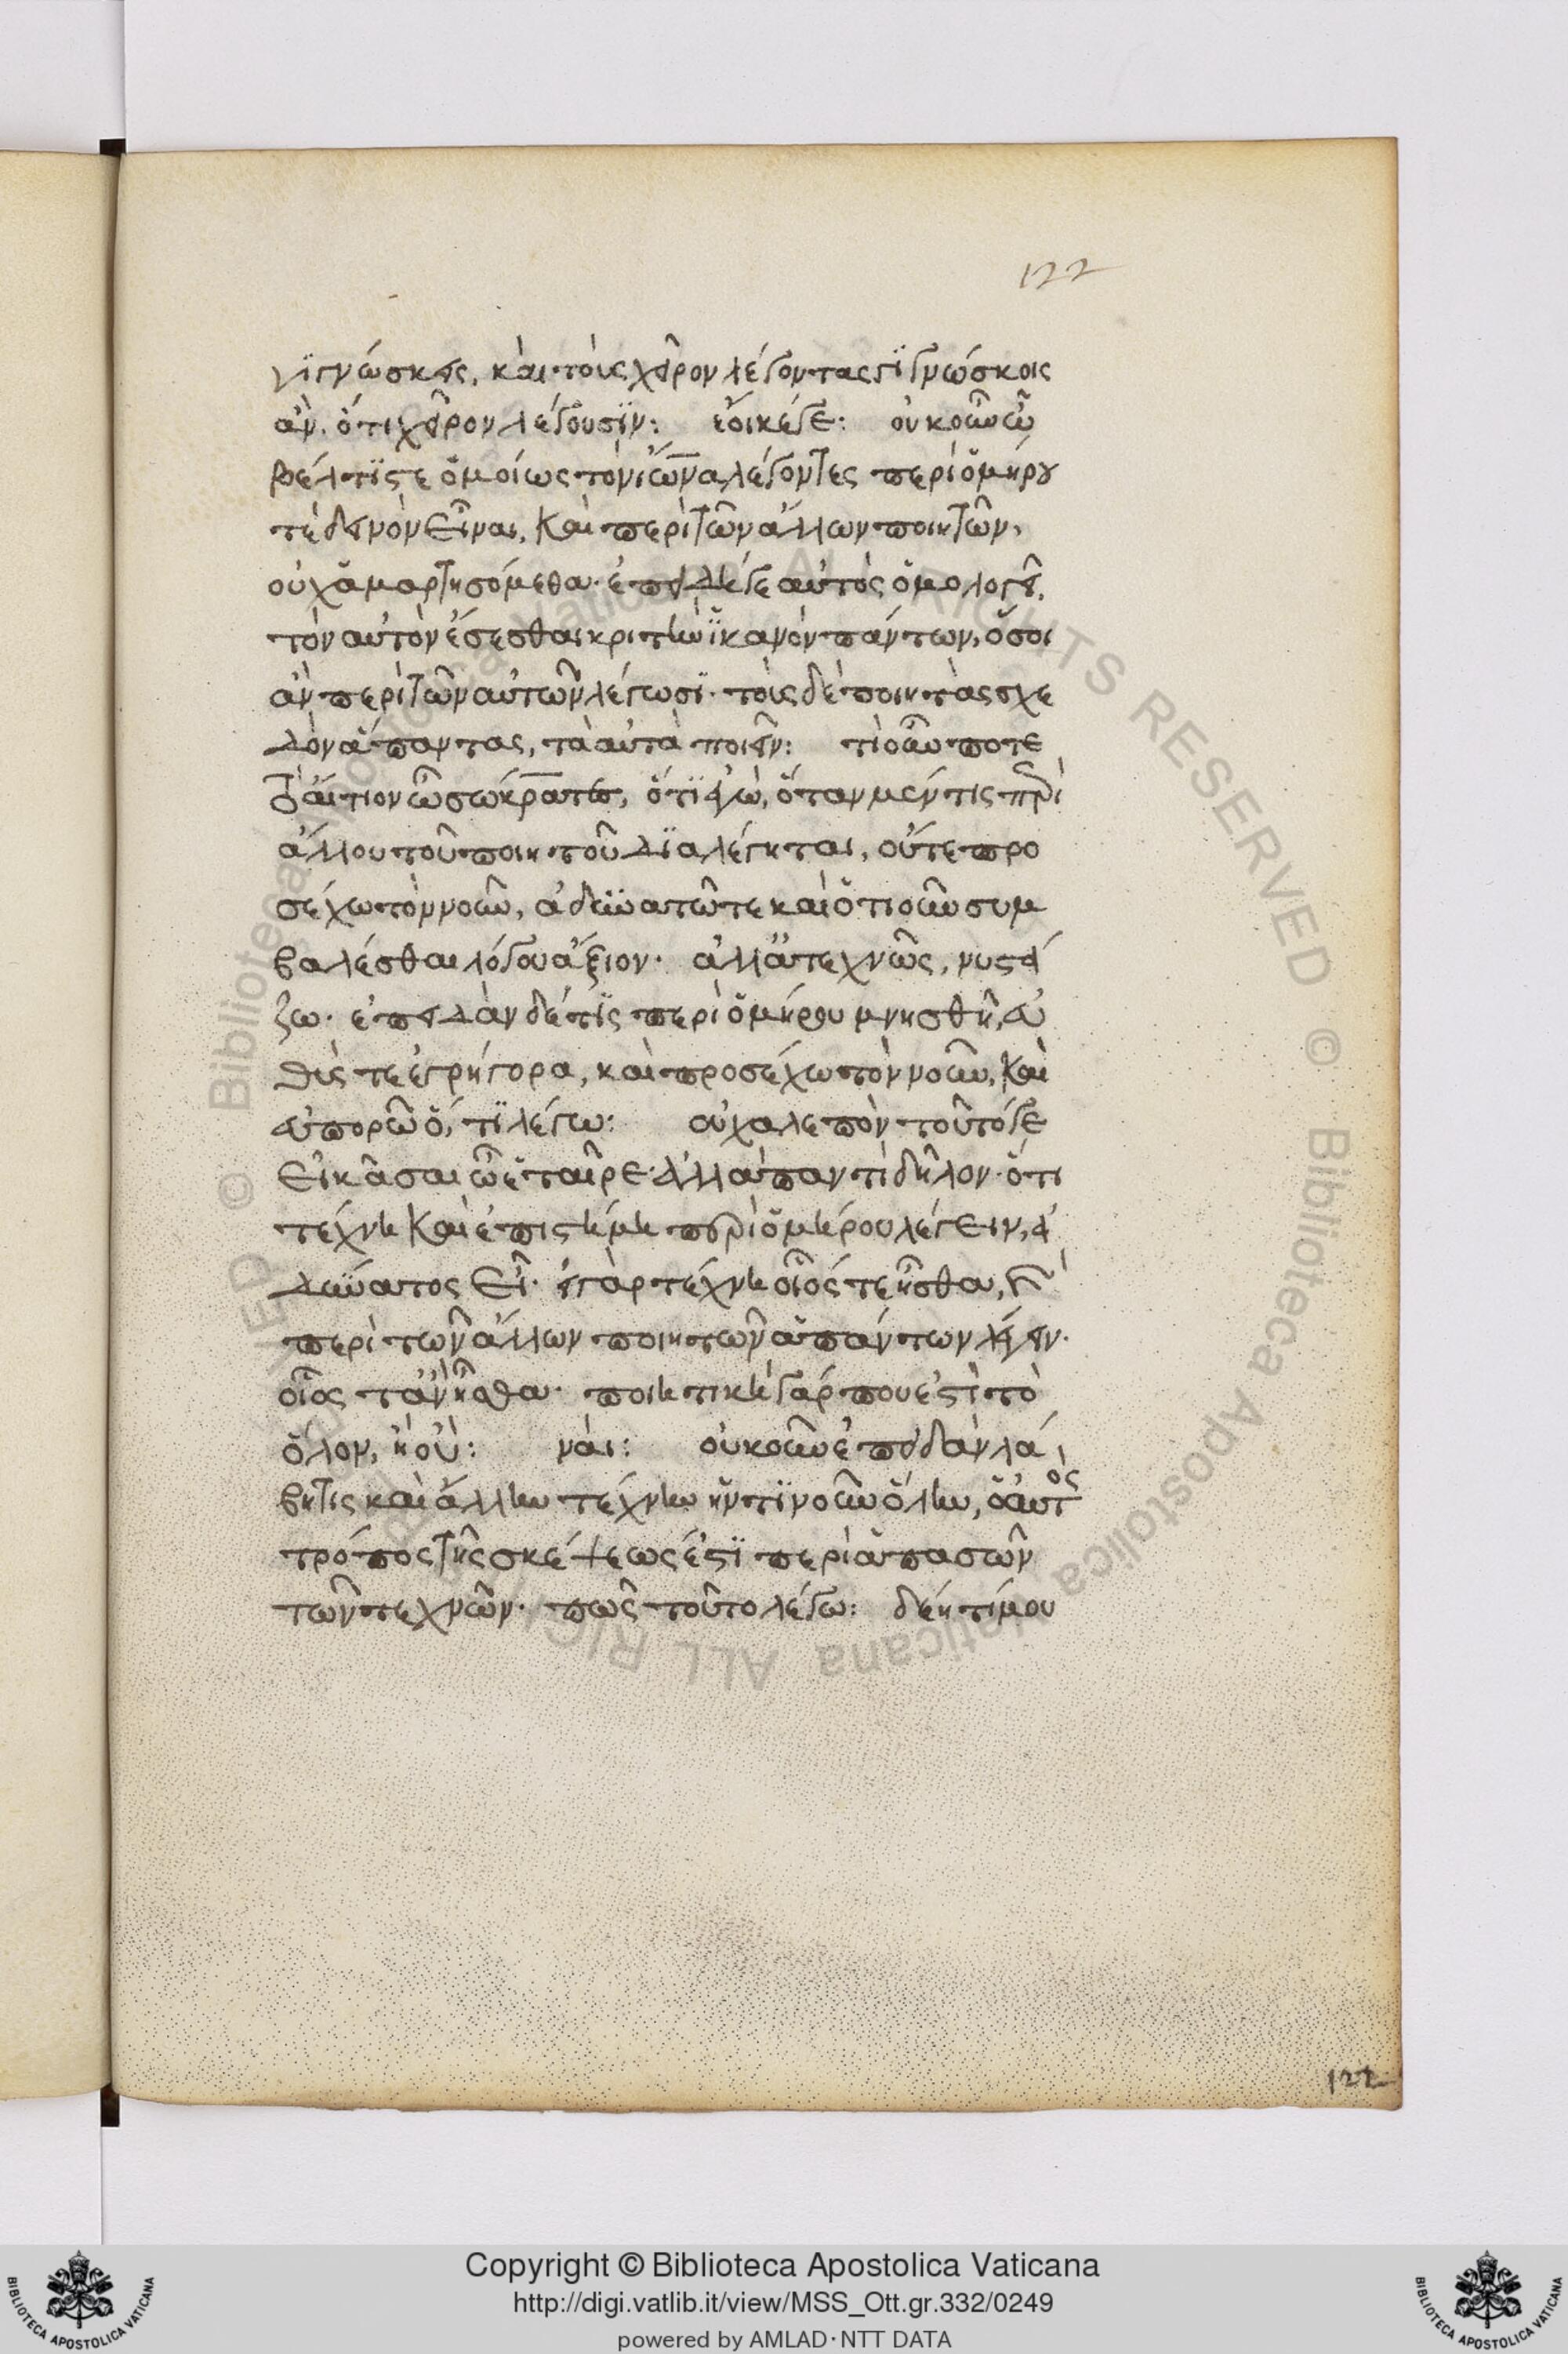 122
γϊγνώσκεις, καὶ τοὺς χεῖρον λέγοντας γϊγνώσκοις
ἂν, ὅτι χεῖρον λέγουσϊν: ἔοικέγε: οὐκοῦν ὦ
βέλτϊστε ὁμοίως τὸν ἴωνα λέγοντες περὶ ὁμήρου
τὲ δεινὸν εἶναι, καὶ περὶ τῶν ἄλλων ποιητῶν,
οὐχ ἁμαρτησόμεθα· ἐπειδήγε αὐτὸς ὁμολογεῖ,
τὸν αὐτὸν ἔσεσθαι κριτὴν ἱκανὸν πάντων, ὅσοι
ἂν περὶ τῶν αὐτῶν λέγωσϊ· τοὺς δὲ ποιητὰς σχε
δὸν ἅπαντας, τὰ αὐτὰ ποιεῖν: τί οὖν ποτε
τὸ αἴτιον ὦ σώκρατες, ὅτϊ ἐγὼ, ὅταν μέν τις περὶ
ἄλλου του ποιητοῦ δϊαλέγηται, οὔτε προ
σέχω τὸν νοῦν, ἀδυνατῶ τε καὶ ὁτιοῦν συμ
βαλέσθαι λόγου ἄξιον· ἀλλ' ἀτεχνῶς, νυστά
ζω· ἐπειδὰν δέ τϊς περὶ ὁμήρου μνησθῆ, εὐ
θύς τε ἐγρήγορα, καὶ προσέχω τὸν νοῦν, καὶ
εὐπορῶ ὅ, τϊ λέγω: οὐ χαλεπὸν τοῦτό γε
εἰκάσαι ὦ ἑταῖρε· ἀλλὰ παντὶ δῆλον· ὅτι
τέχνη καὶ ἐπιστήμη περὶ ὁμήρου λέγειν, ἀ
δύνατος εἶ· εἰ γὰρ τέχνη οἷός τε ἦσθα, καὶ
περὶ τῶν ἄλλων ποιητῶν ἁπάντων λέγειν·
οἷος τ' ἂν ἦσθα· ποιητικὴ γάρ που ἐστὶ τὸ
ὅλον, ἢ οὔ: ναί: οὐκοῦν ἐπειδὰν λά
βη τις καὶ ἄλλην τέχνην ἥντϊνοῦν ὅλην, ὁ αὐτὸς
τρόπος τῆς σκέψεως ἐστϊ περὶ ἁπασῶν
τῶν τεχνῶν· πῶς τοῦτο λέγω: δέη τί μου
122
Copyright © Biblioteca Apostolica Vaticana
http://digi.vatlib.it/view/MSS_Ott.gr.332/0249
powered by AMLAD·NTT DATA